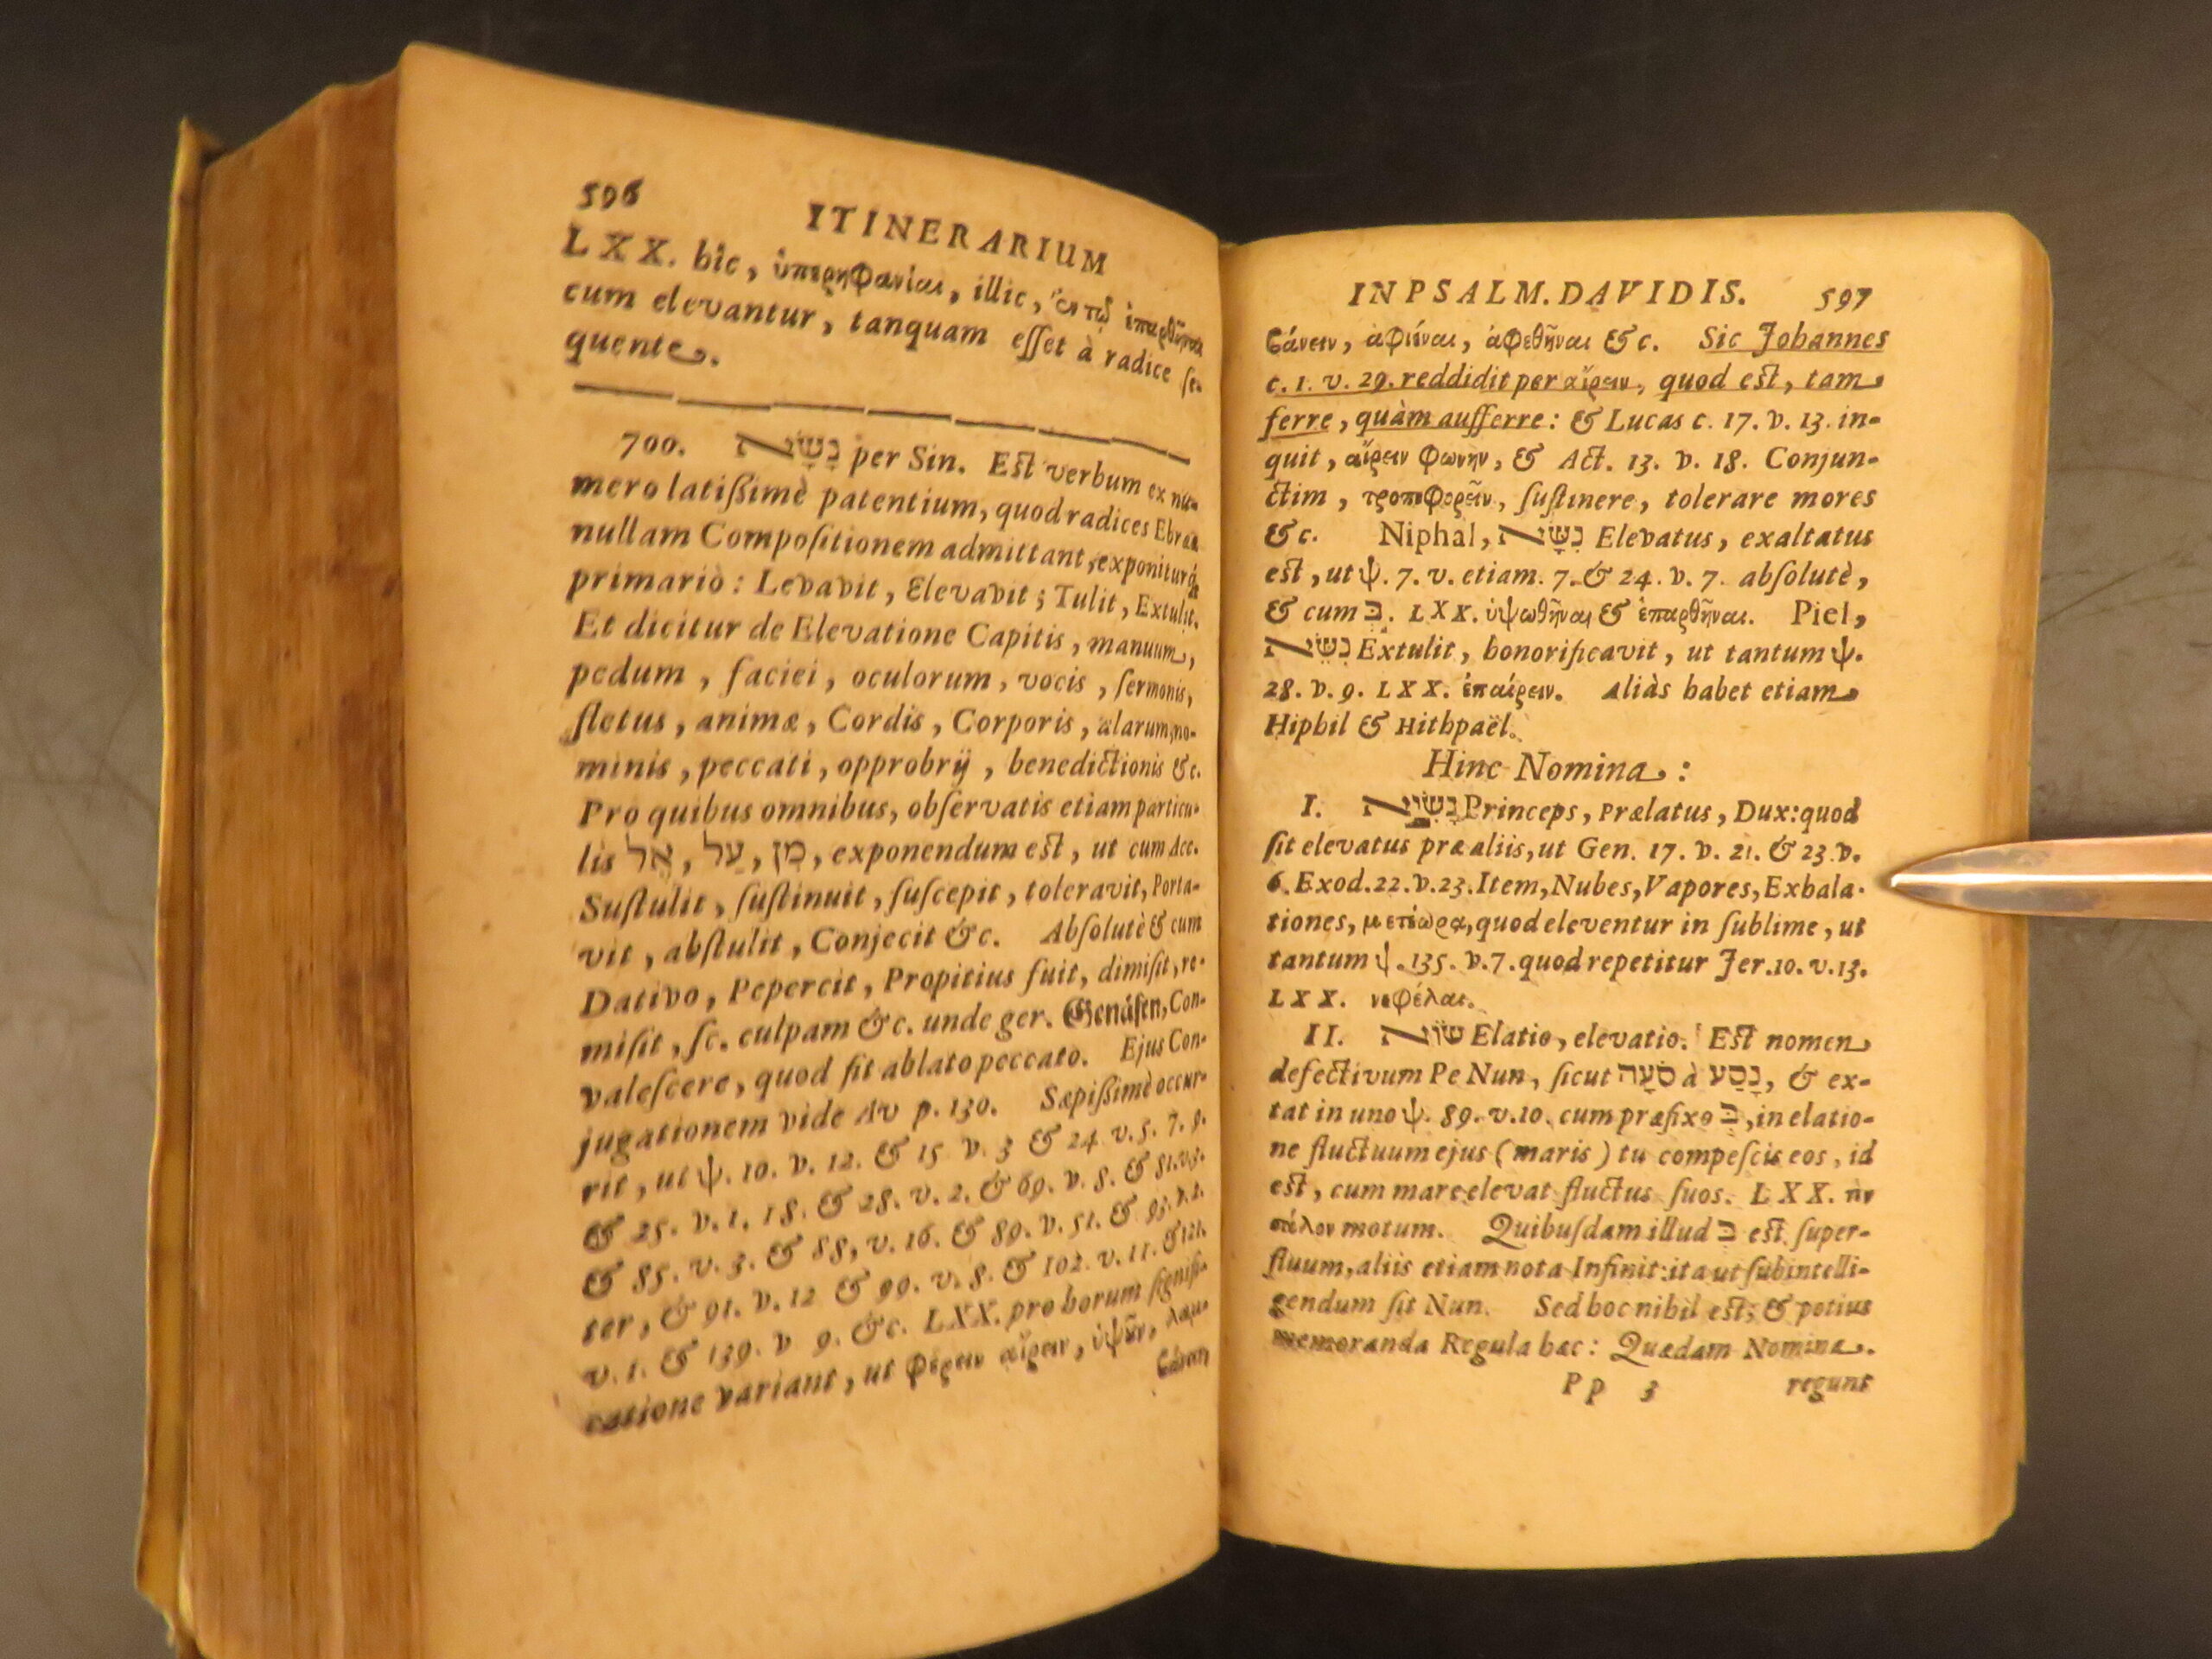 596 ITINERARIUM
LXX. hic, ὑπερηφανίαι, illic, ἐν τῷ
cum elevantur, tanquam eſſet à radice ſe-
quente.
700. נָשָׂא per Sin. Eſt verbum ex nu-
mero latißimè patentium, quod radices Ebrææ
nullam Compoſitionem admittant, exponiturq́
primariò: Levavit, Elevavit; Tulit, Extulit.
Et dicitur de Elevatione Capitis, manuum,
pedum, faciei, oculorum, vocis, ſermonis,
fletus, animæ, Cordis, Corporis, alarum, no-
minis, peccati, opprobrij, benedictionis &c.
Pro quibus omnibus, obſervatis etiam particu-
lis אֶל, עַל, מִן, exponendum eſt, ut cum Acc.
Suſtulit, ſuſtinuit, ſuſcepit, toleravit, Porta-
vit, abſtulit, Conjecit &c. Abſolutè & cum
Dativo, Pepercit, Propitius fuit, dimiſit, re-
miſit, ſc. culpam &c. unde ger. Genäſen, Con-
valeſcere, quod ſit ablato peccato. Ejus Con-
jugationem vide Av p. 130. Sæpißimè occur-
rit, ut ψ. 10. v. 12. & 15 v. 3 & 24. v. 5. 7. 9.
& 25. v. 1. 18. & 28. v. 2. & 69. v. 8. &
& 85. v. 3. & 88, v. 16. & 89. v. 51. & 93. v. 2.
ter, & 91. v. 12 & 99. v. 8. & 102. v. 11. & 121.
v. 1. & 139. v 9. &c. LXX. pro horum ſignifi-
catione variant, ut φέρειν αἴρειν, ὑψοῦν, λαμ-
βάνειν
IN PSALM. DAVIDIS. 597
βάνειν, ἀφιέναι, ἀφεθῆναι &c. Sic Johannes
c. 1. v. 29. reddidit per αἴρειν, quod eſt, tam
ferre, quàm aufferre: & Lucas c. 17. v. 13. in-
quit, αἴρειν φωνήν, & Act. 13. v. 18. Conjun-
ctim, τροποφορεῖν, ſuſtinere, tolerare mores
&c. Niphal, נִשָּׂא Elevatus, exaltatus
eſt, ut ψ. 7. v. etiam. 7. & 24. v. 7. abſolutè,
& cum בְּ. LXX. ὑψωθῆναι & ἐπαρθῆναι. Piel,
נִשֵּׂא Extulit, honorificavit, ut tantum ψ.
28. v. 9. LXX. ἐπαίρειν. Aliàs habet etiam
Hiphil & Hithpaël.
Hinc Nomina:
I. נָשִׂיא Princeps, Prælatus, Dux: quod
ſit elevatus præ aliis, ut Gen. 17. v. 21. & 23. v.
6. Exod. 22. v. 23. Item, Nubes, Vapores, Exhala-
tiones, μετέωρα, quod eleventur in ſublime, ut
tantum ψ. 135. v. 7. quod repetitur Jer. 10. v. 13.
LXX. νεφέλας.
II. שׂוֹא Elatio, elevatio. Eſt nomen
defectivum Pe Nun, ſicut סֹעָה à נָסַע, & ex-
tat in uno ψ. 89. v. 10. cum præfixo בְּ, in elatio-
ne fluctuum ejus (maris) tu compeſcis eos, id
eſt, cum mare elevat fluctus ſuos. LXX. τὸν
σάλον motum. Quibuſdam illud בְּ eſt ſuper-
fluum, aliis etiam nota Infinit: ita ut ſubintelli-
gendum ſit Nun. Sed hoc nihil eſt; & potius
memoranda Regula hæc: Quædam Nomina
Pp 3 regunt